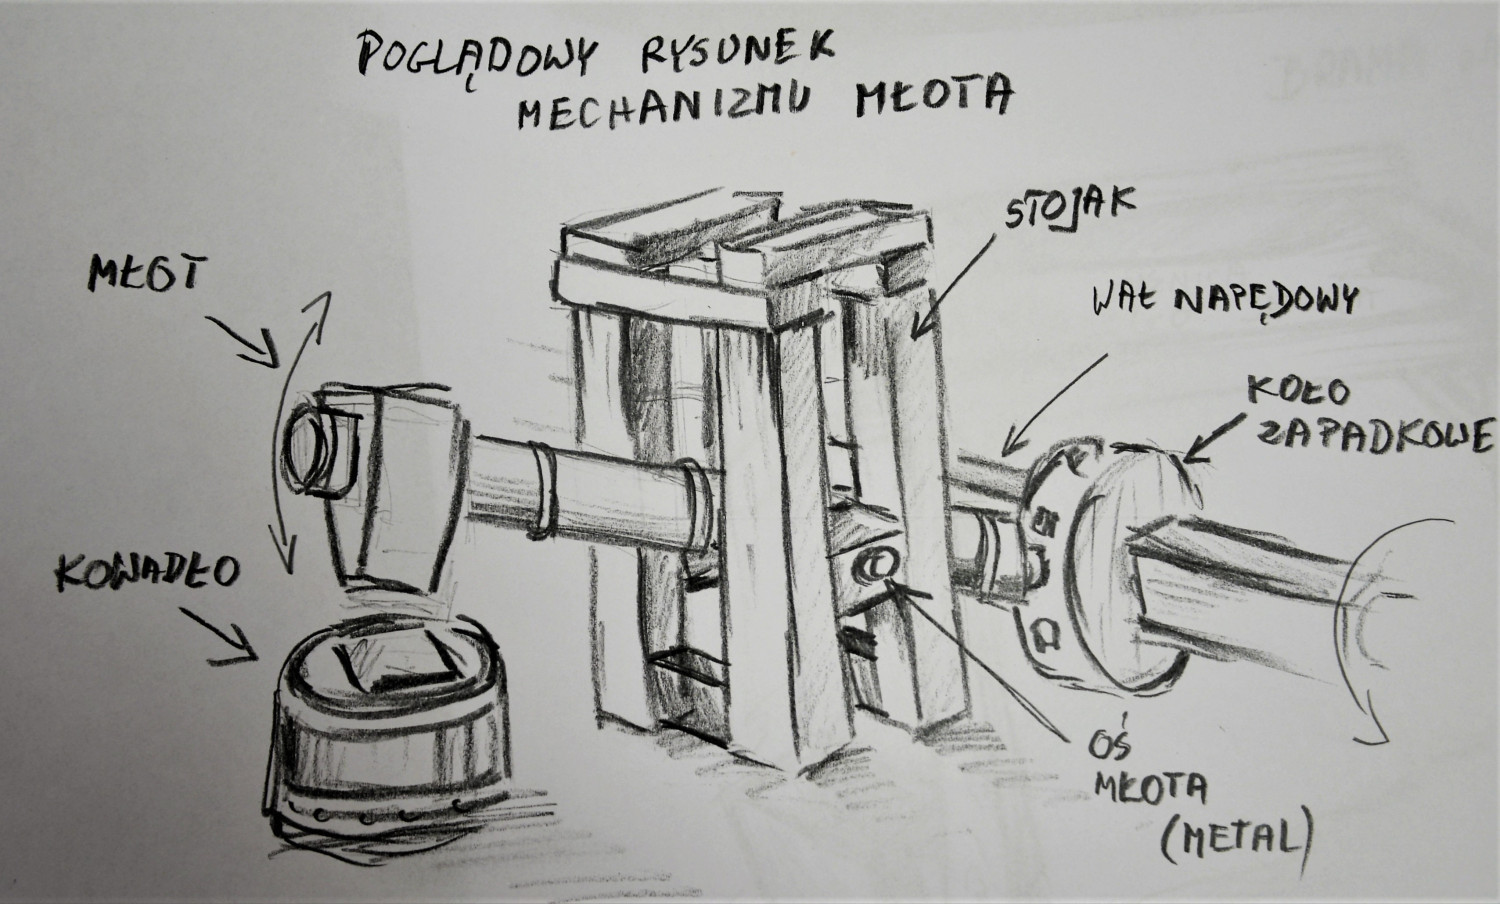 POGLĄDOWY RYSUNEK
MECHANIZMU MŁOTA
STOJAK
MŁOT
WAŁ NAPĘDOWY
KOŁO
ZAPADKOWE
KOWADŁO
OŚ
MŁOTA
(METAL)